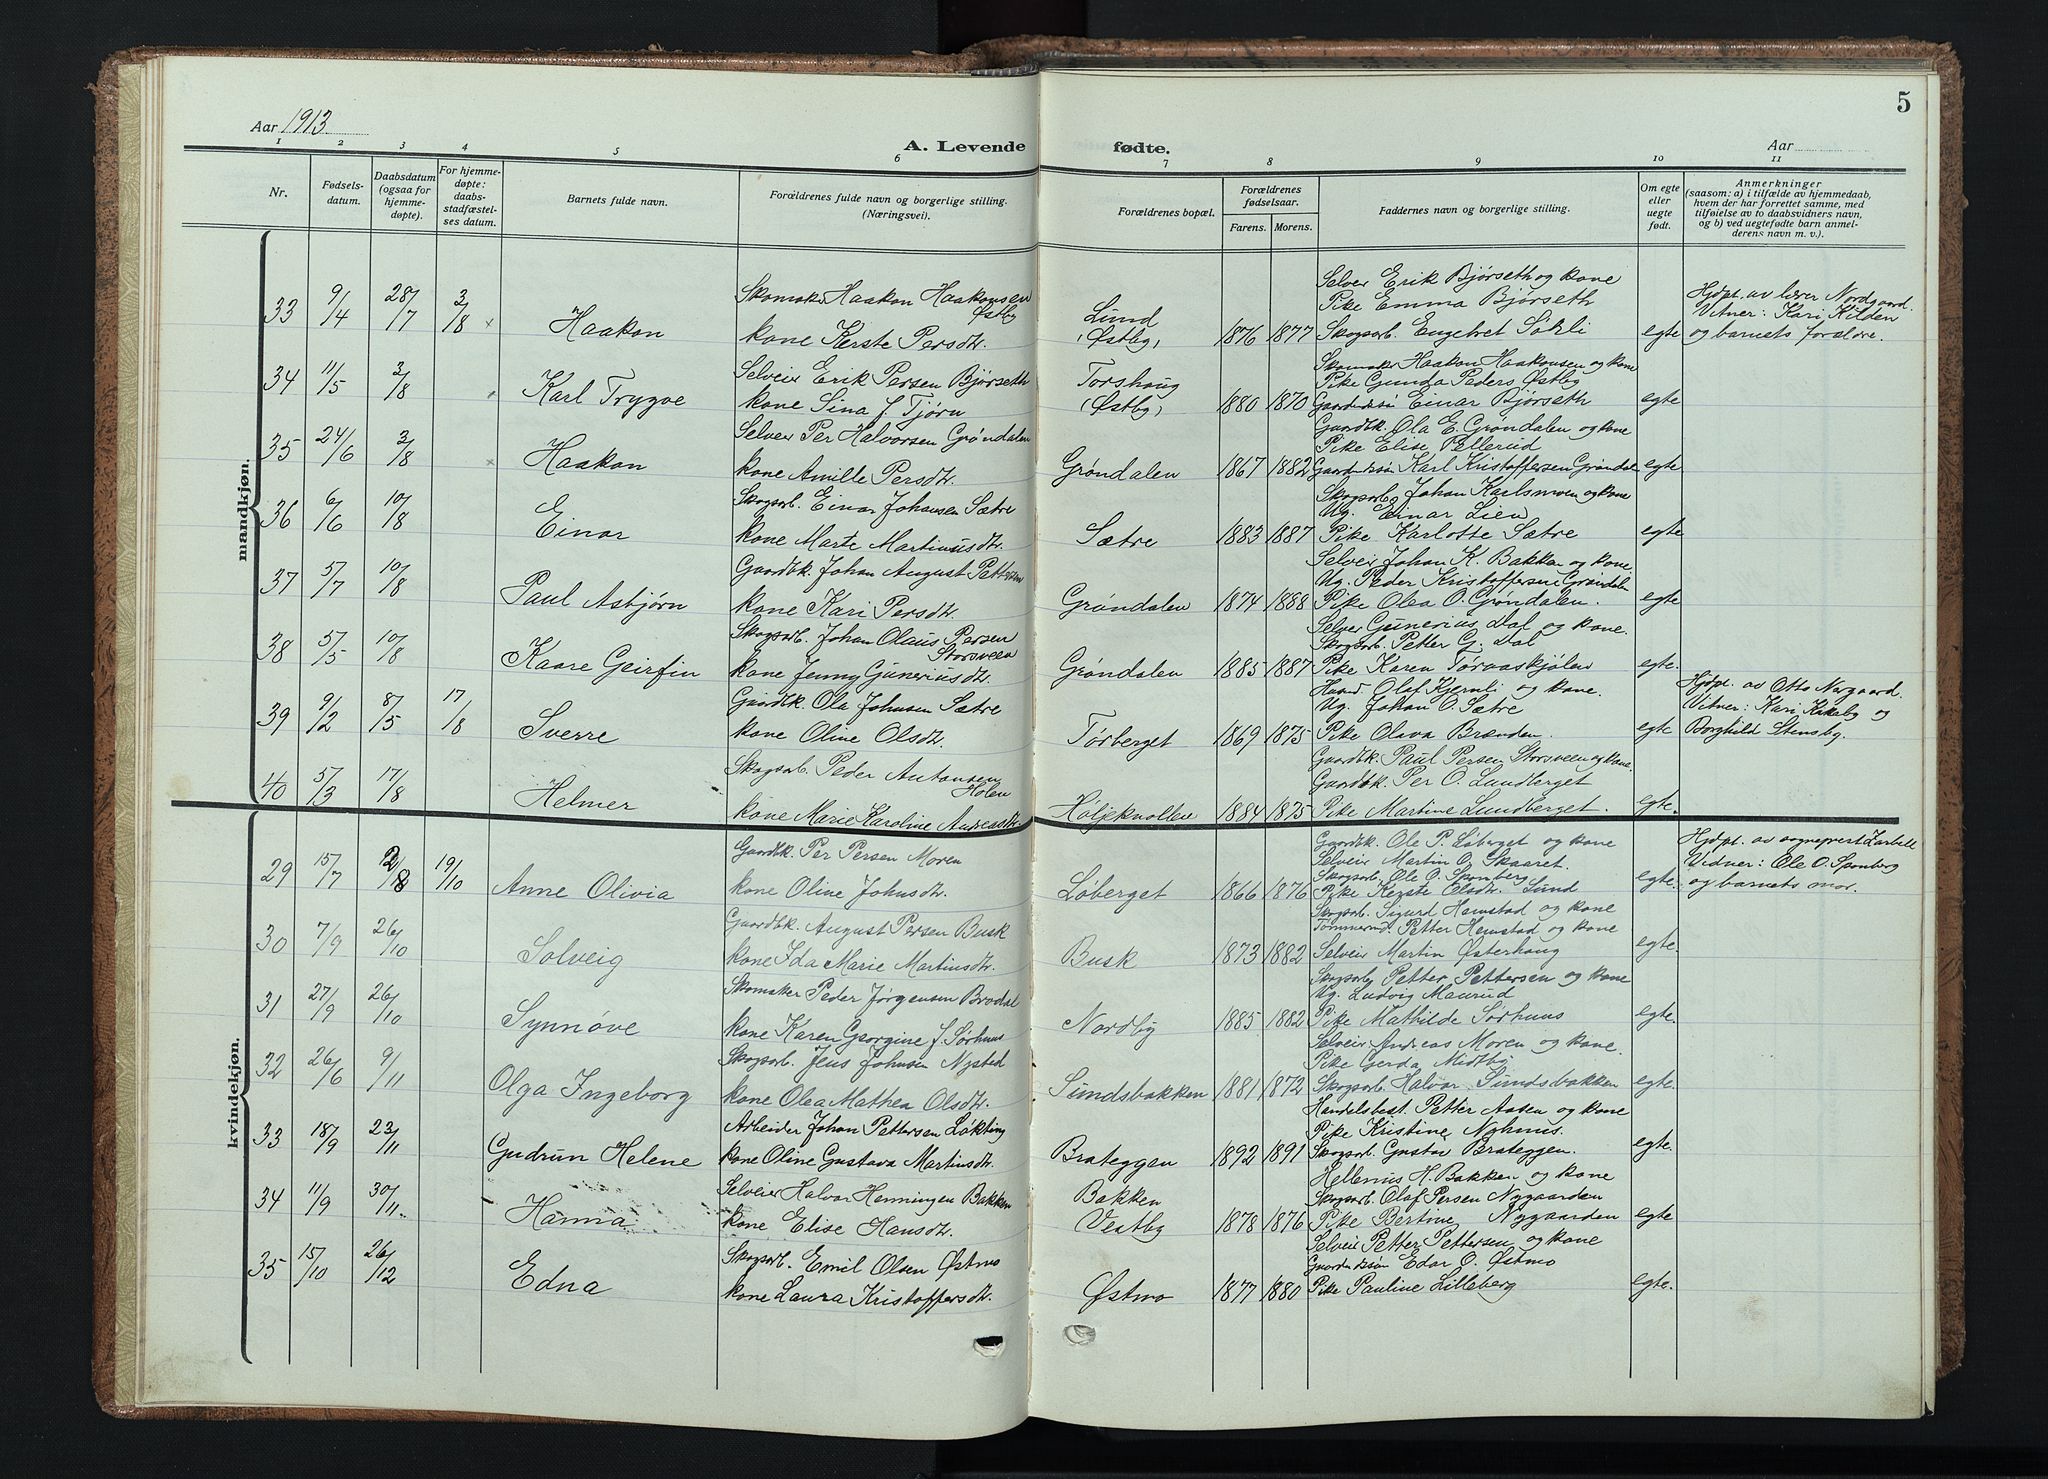 5
Aar 1913
A. Levende fødte.
Aar
1 2 3 4 5 6 7 8 9 10 11
Nr.
Fødsels-
datum.
Daabsdatum
(ogsaa for
hjemme-
døpte).
For hjemme-
døpte:
daabs-
stadfæstel-
ses datum.
Barnets fulde navn.
Forældrenes fulde navn og borgerlige stilling.
(Næringsvei).
Forældrenes bopæl.
Forældrenes
fødselsaar.
Farens. Morens.
Faddernes navn og borgerlige stilling.
Om egte
eller
uegte
født.
Anmerkninger
(saasom: a) i tilfælde av hjemmedaab,
hvem der har forrettet samme, med
tilføielse av to daabsvidners navn,
og b) ved uegtefødte barn anmel-
derens navn m. v.).
mandkjøn.
33 9/4 28/7 3/8 Haakon
Skomaker Haakon Haakonsen
Østby
kone Kerste Persdtr.
Lund
(Østby)
1876 1877
Selveier Erik Bjørseth og kone
Pike Emma Bjørseth
Skogsarb. Engebret Søhli
egte
Hjdpt. av lærer Nordgaard.
Vitner: Kari Kilden
og barnets forældre.
34 11/5 3/8 Karl Trygve
Selveier Erik Persen Bjørseth
kone Sina f. Tjørn
Torshaug
(Østby)
1880 1870
Skomaker Haakon Haakonsen og kone
Pike Gunda Peders Østby
Gaardbr.søn Einar Bjørseth
egte
35 24/6 3/8 Haakon
Selveier Per Halvorsen Grøndalen
kone Amille Persdtr.
Grøndalen
1867 1882
Gaardbk. Ola E. Grøndalen og kone
Pike Elise Pellerud
Gaardbr.søn Karl Kristoffersen Grøndalen
egte
36 6/6 10/8 Einar
Skogsarb. Einar Johansen Sætre
kone Marte Martinusdtr.
Sætre
1883 1887
Skogsarb. Johan Karlsmoen og kone
Ug. Einar Lien
Pike Karlotte Sætre
egte
37 5/7 10/8 Paul Asbjørn
Gaardbk. Johan August Pettersen
kone Kari Persdtr.
Grøndalen
1874 1888
Selveier Johan K. Bakken og kone
Ug. Peder Kristoffersen Grøndalen
Pike Olea O. Grøndalen.
egte
38 5/5 10/8 Kaare Geirfin
Skogsarb. Johan Olaus Persen
Storsveen
kone Jenny Guneriusdtr.
Grøndalen
1885 1887
Selveier Gunerius Dal og kone.
Skogsarb. Petter G. Dal
Pike Karen Tørvaaskjølen
egte.
39 9/2 8/5 17/8 Sverre
Gaardbk. Ola Johnsen Sætre
kone Oline Olsdtr.
Tørberget
1869 1875
Olaf Kjernli og kone.
Ug. Johan O. Sætre
Pike Olava Brænden.
egte
Hjdpt. av Otto Norgaard.
Vitner: Kari Kirkeby og
Borghild Stensby.
40 5/3 17/8 Helmer
Skogsarb. Peder Antonsen
Holen
kone Marie Karoline Andreasdtr.
Høljeknollen
1884 1875
Gaardbk. Paul Persen Storsveen og kone.
Gaardbk. Per O. Lundberget
Pike Martine Lundberget.
egte.
kvindekjøn.
29 15/7 12/8 19/10 Anne Olivia
Gaardbk. Per Persen Moren
kone Oline Johnsdtr.
Løberget
1866 1876
Gaardbk. Ole P. Løberget og kone
Selveier Martin O. Skaaret.
Skogsarb. Ole O. Sponberg
Pike Kerste Olsdtr. Lund
egte.
Hjdpt. av sogneprest
Vidner: Ole O. Sponberg
og barnets mor.
30 7/9 26/10 Solveig
Gaardbk. August Persen Busk
kone Ida Marie Martinsdtr.
Busk
1873 1882
Skogsarb. Sigurd Hemstad og kone
Tømmermd. Petter Hemstad og kone
Selveier Martin Østerhaug
egte
31 27/9 26/10 Synnøve
Skomaker Peder Jørgensen Brodal
kone Karen Georgine f. Sørhuus
Nordby
1885 1882
Skogsarb. Petter Pettersen og kone
Ug. Ludvig Maurud
Pike Mathilde Sørhuus
egte.
32 26/6 9/11 Olga Ingeborg
Skogsarb. Jens Johnsen Nysted
kone Olea Mathea Olsdtr.
Sundsbakken
1881 1872
Selveier Andreas Moren og kone.
Pike Gerda Midtby
Skogsarb. Halvor Sundsbakken
egte.
33 18/9 23/11 Gudrun Helene
Arbeider Johan Pettersen Løkting
kone Oline Gustava Martinsdtr.
Brateggen
1892 1891
Handelsbest. Petter Aasen og kone
Pike Kristine Nohnus.
Skogsarb. Gustav Brateggen.
egte.
34 11/9 30/11 Hanna
Selveier Halvor Henningen Bakken
kone Elise Hansdtr.
Bakken
Vestby
1878 1876
Hellenius H. Bakken og kone
Skogsarb. Olaf Persen Nygaarden
Pike Bertine Nygaarden
egte
35 15/10 26/12 Edna
Skogsarb. Emil Olsen Østmo
kone Laura Kristoffersdtr.
Østmo
1877 1880
Selveier Petter Pettersen og kone
Gaardbr.søn Edar O. Østmo
Pike Pauline Lilleberg
egte.